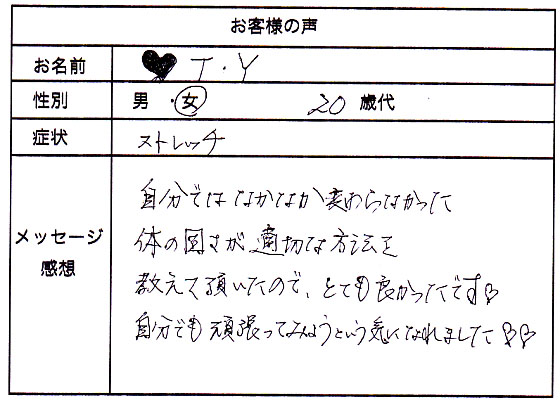 お客様の声
お名前 ♥ T・Y
性別 男・女 20 歳代
症状 ストレッチ
メッセージ
感想
自分ではなかなか変わらなかった
体の固さが適切な方法を
教えて頂いたので、とても良かったです♡
自分でも頑張ってみようという気になれました♡♡